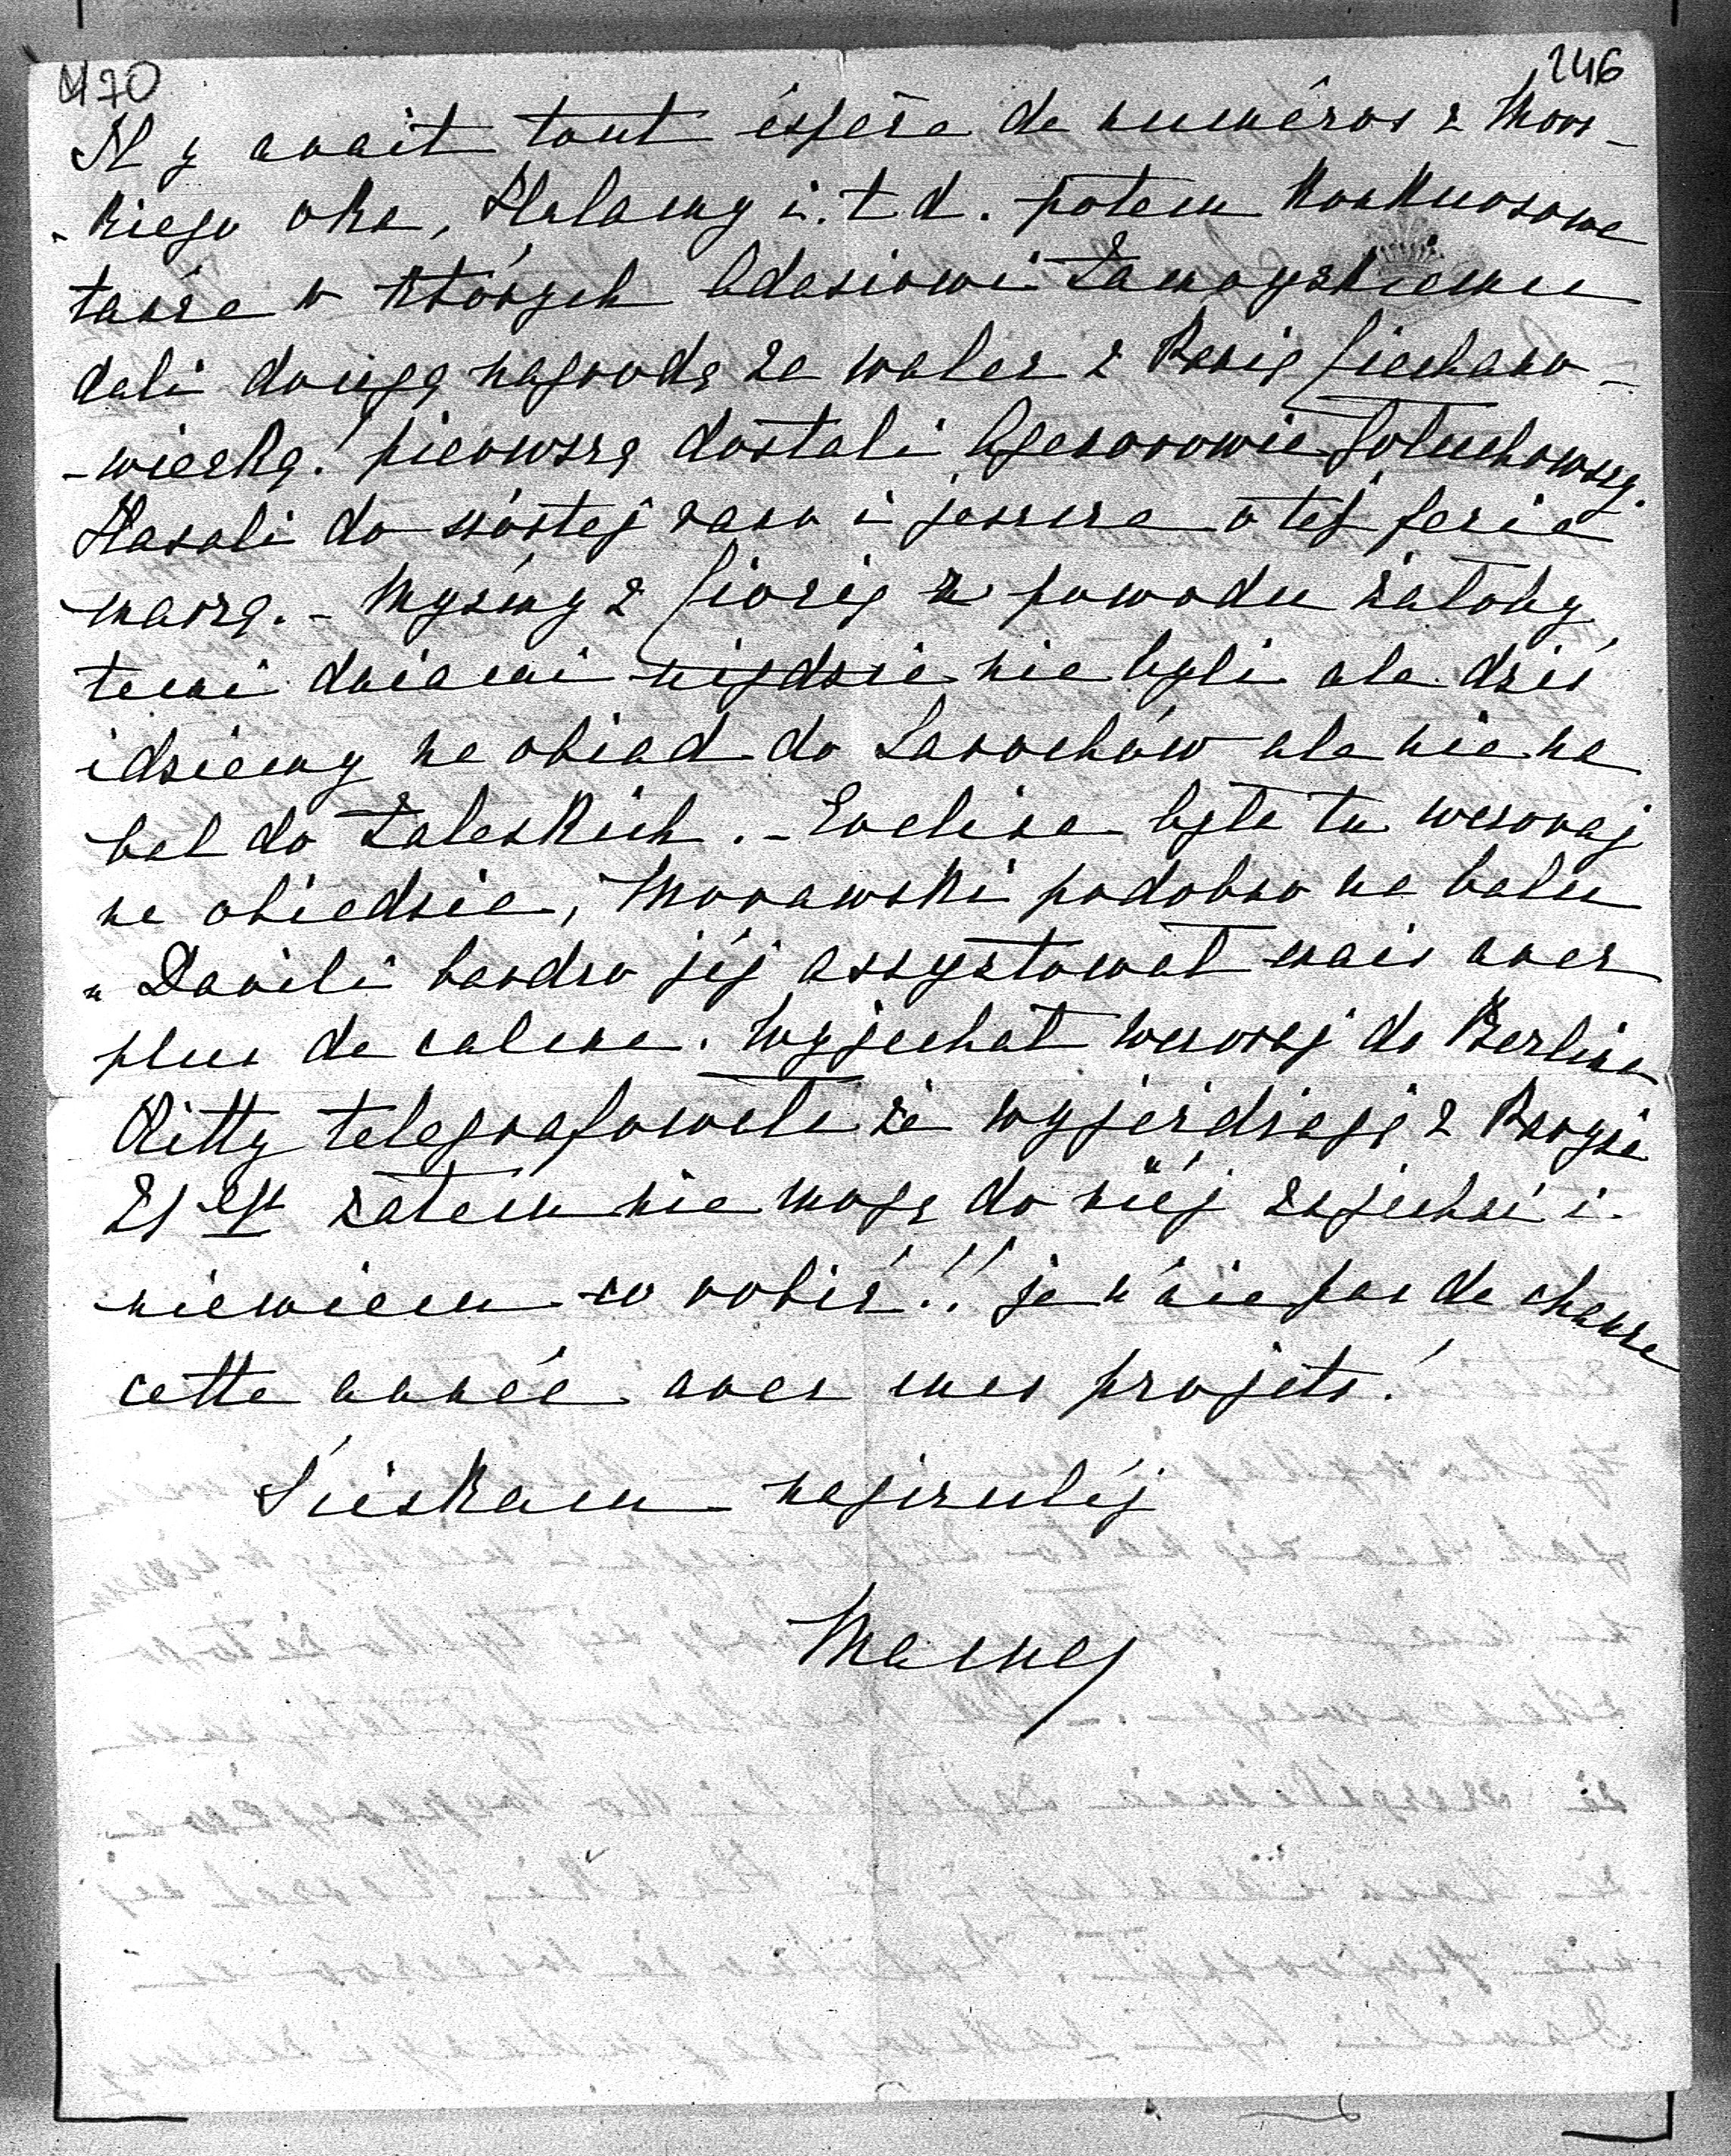 470
246
Il y avait tout éspèce de numéros z Mors-
-kiego oka, Halamy i.t.d. potem Konkursowe
tańce w których Adasiowi Zamoyskiemu
dali drugą nagrodę za walca z Renią Ciechano-
-wiecką! pierwszą dostali Agenorowie Gołuchowscy.
Hasali do szóstej rano i jeszcze o tej ferie
marzą. - Myśmy z Ciocią z powodu żałoby
temi dniami nigdzie nie byli ale dziś
idziemy na obiad do Larochów ale nie na
bal do Zaleskich. - Ewelina była tu wczoraj
na obiedzie, Morawski podobno na balu
u Danili bardzo jéj assystował mais avec
plus de calme. Wyjechał wczoraj do Berlina
Kitty telegrafowała że wyjeżdżają z Paryża
21 zatém nie mogę do niéj zajechać i
niewiem co robić!! je n'aie pas de chance
cette année avec mes projets!
Ściskam najczuléj